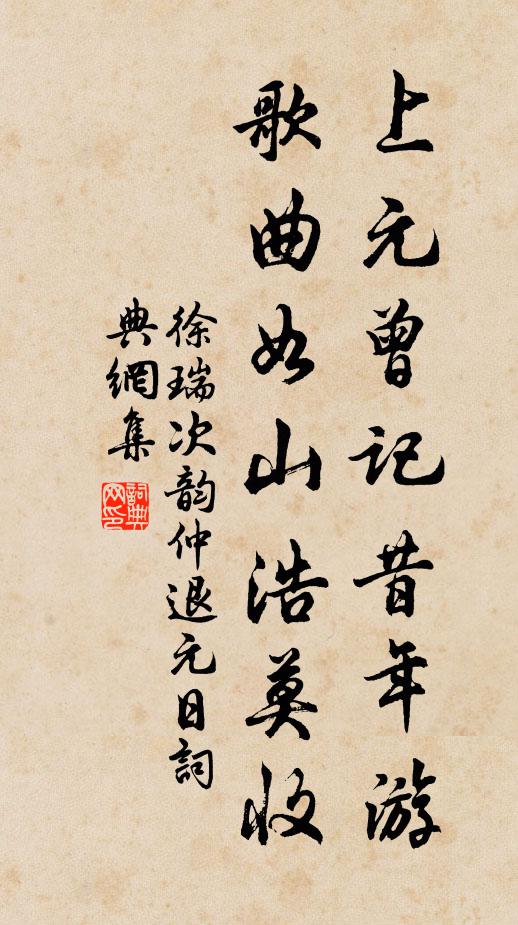 上元曾记昔年游
歌曲如山浩莫收
徐瑞次韵仲退元日詞
典網集
詞典网印